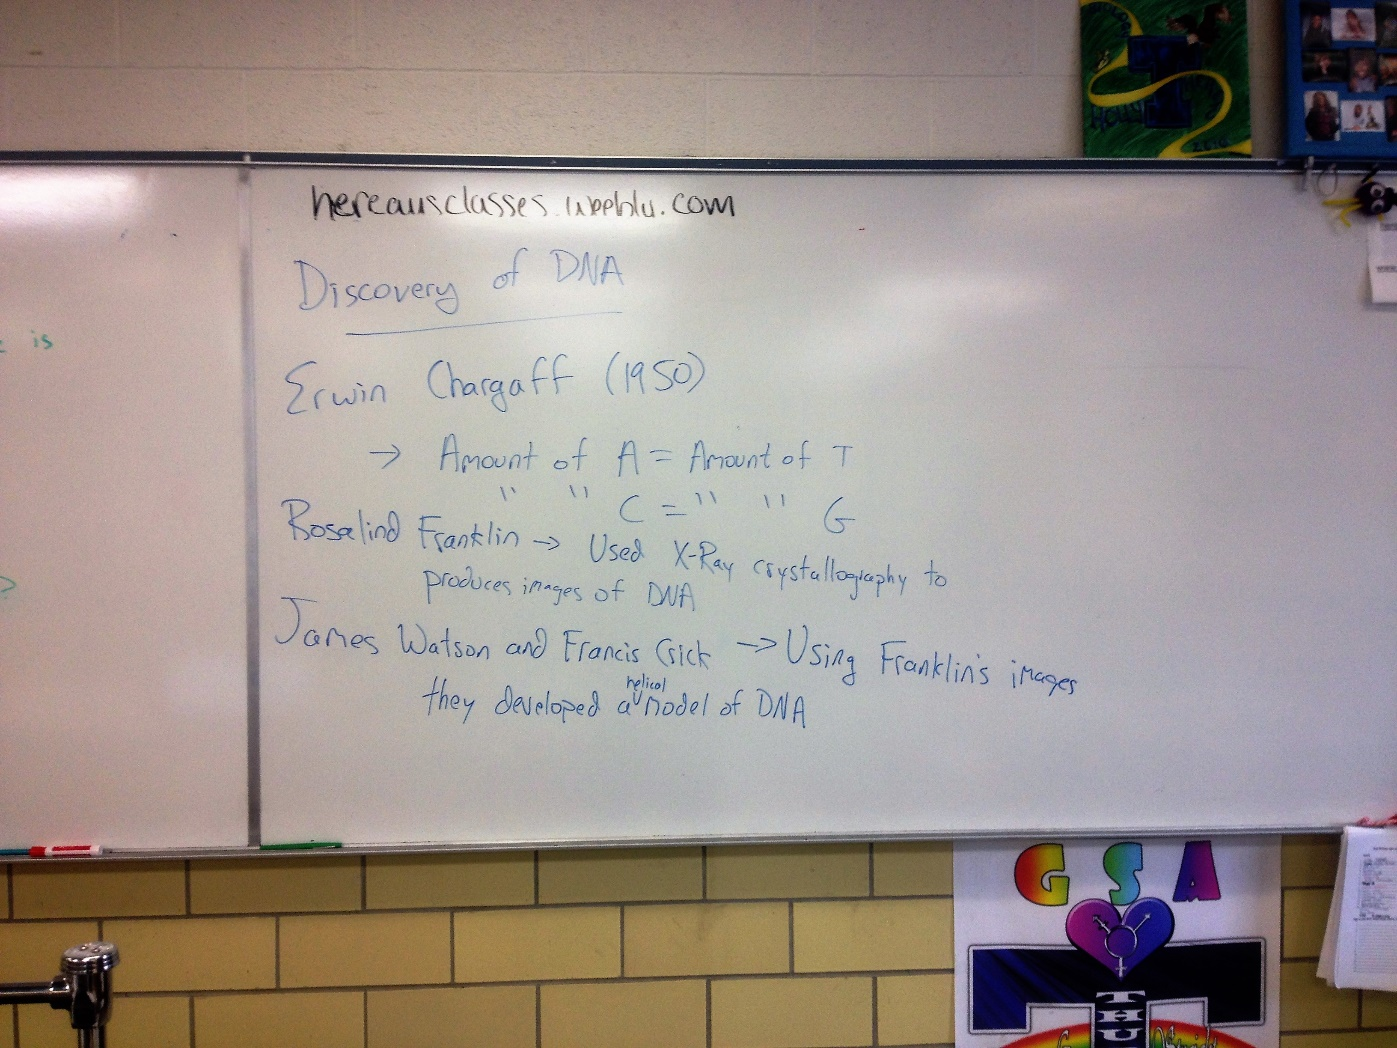 hereausclasses.weebly.com
Discovery of DNA
Erwin Chargaff (1950)
→ Amount of A = Amount of T
" " C = " " G
Rosalind Franklin → Used X-Ray crystallography to
produces images of DNA
James Watson and Francis Crick → Using Franklin's images
they developed a helical model of DNA
is
GSA
THU